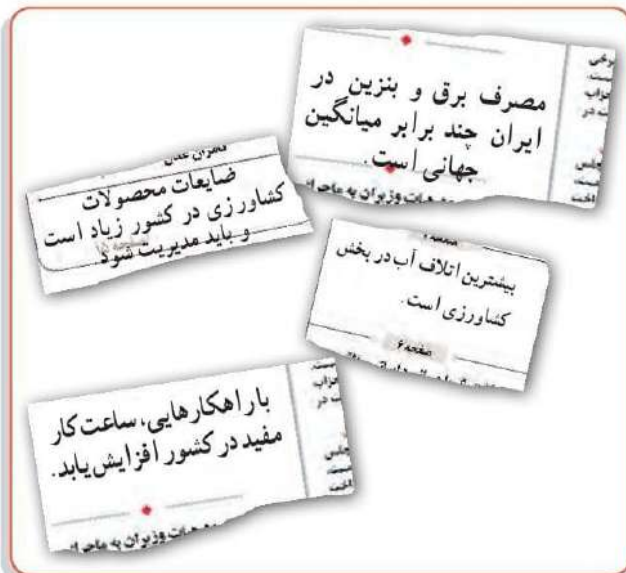 مصرف برق و بنزین در
ایران چند برابر میانگین
جهانی است.
وزیران به ماجرا
ضایعات محصولات
کشاورزی در کشور زیاد است
و باید مدیریت شود
صفحه ۱۵
بیشترین اتلاف آب در بخش
کشاورزی است.
صفحه ۶
با راهکارهایی، ساعت کار
مفید در کشور افزایش یابد.
وزیران به ماجرا